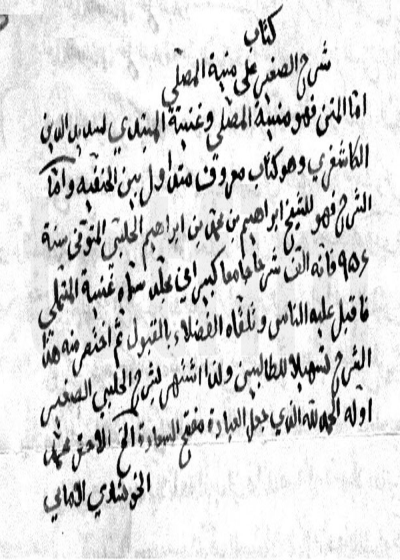 كتاب
شرح الصغير على منية المصلي
اما المتن فهو منية المصلي وغنية المبتدي لسديد الدين
الكاشغري وهو كتاب معروف متداول بين الحنفيه واما
الشرح فهو للشيخ ابراهيم بن محمد بن ابراهيم الحلبي المتوفى سنة
٩٥٦ فانه الف شرحا جامعا كبيرا في مجلد سماه غنية المتملي
فاقبل عليه الناس وتلقاه الفضلاء بالقبول ثم اختصر منه هذا
الشرح تسهيلا للطالبين ولذا اشتهر بشرح الحلبي الصغير
اوله الحمد لله الذي جعل العبادة مفتح السعادة الخ الاحقر محمد
الخانى